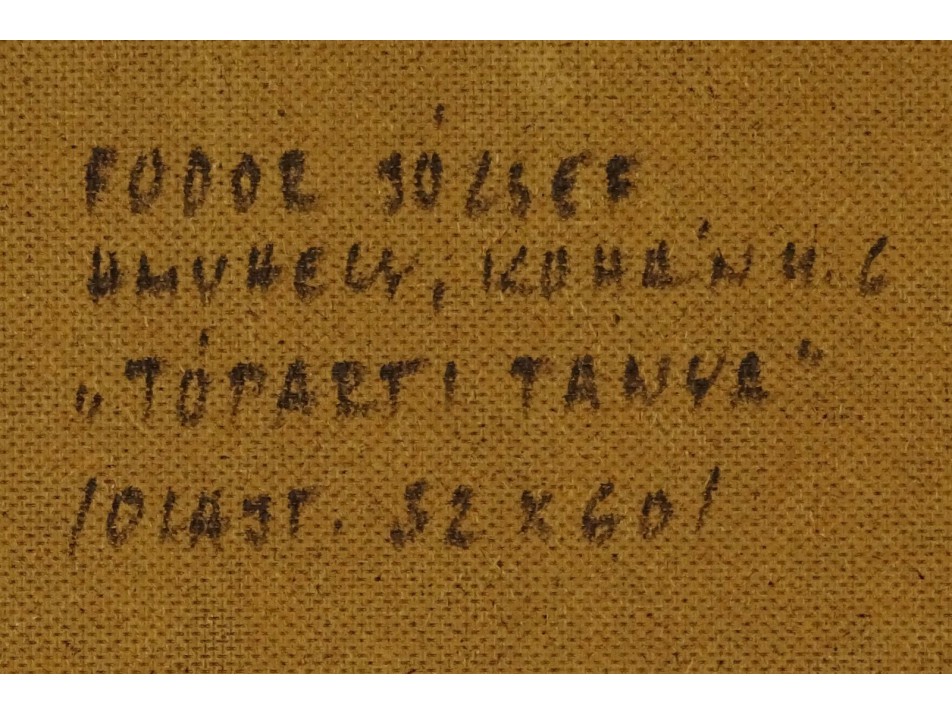 FODOR JÓZSEF
HMVHELY, KOHÁN U. 6
„TÓPARTI TANYA"
/OLAJT. 52 X 60/